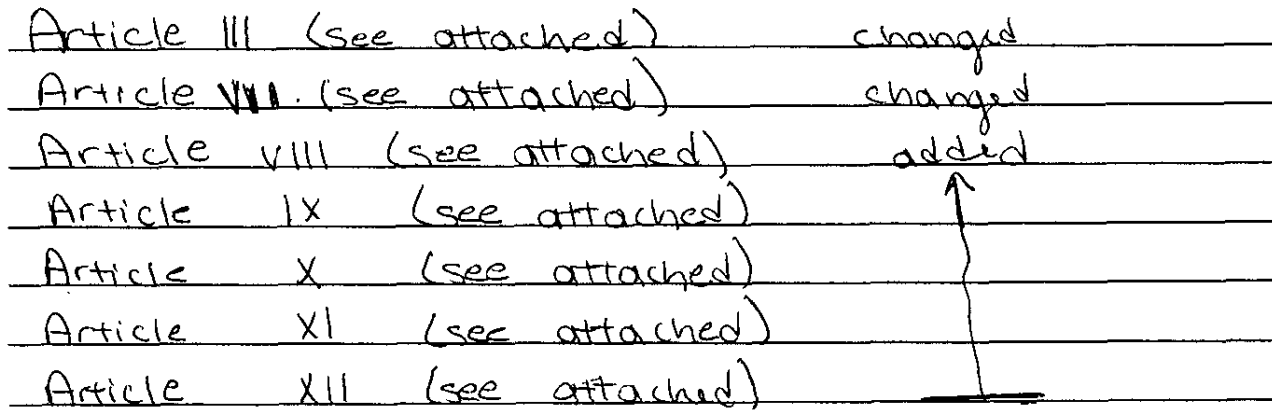 Article III (see attached) changed
Article VII. (see attached) changed
Article VIII (see attached) added
Article IX (see attached)
Article X (see attached)
Article XI (see attached)
Article XII (see attached)